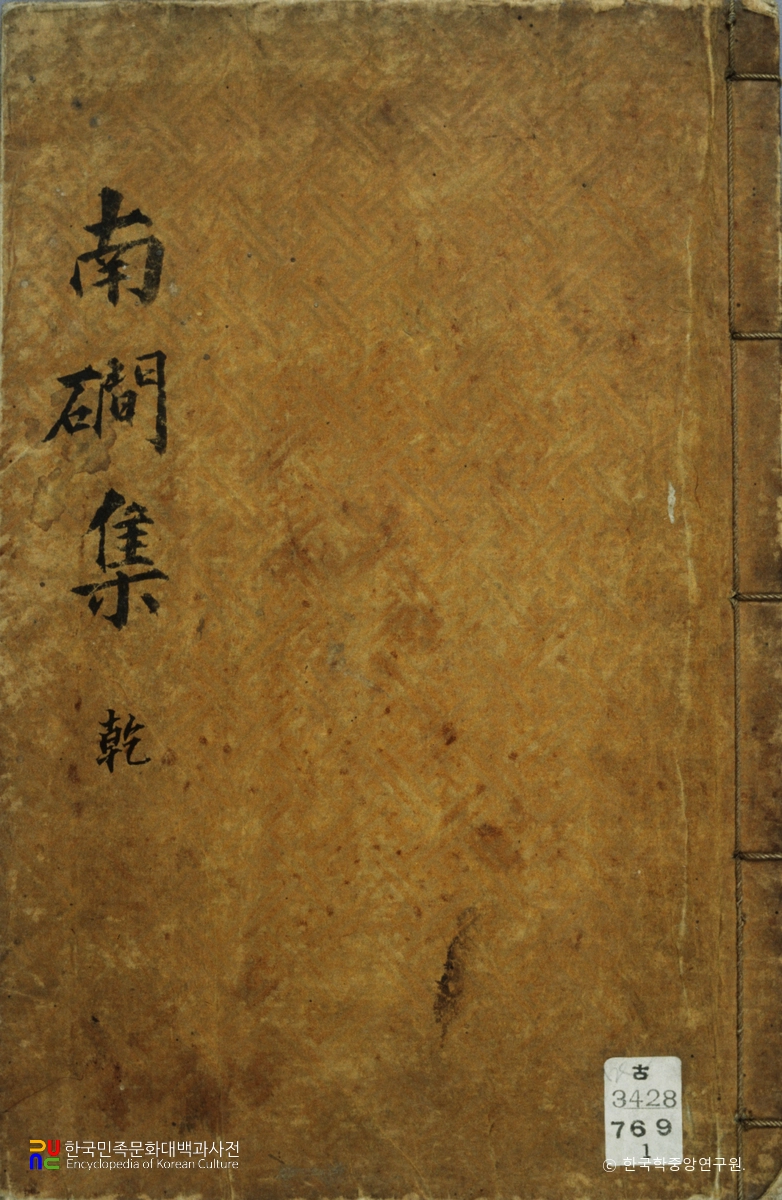 南磵集
乾
古
3428
769
1
한국민족문화대백과사전
Encyclopedia of Korean Culture
© 한국학중앙연구원.